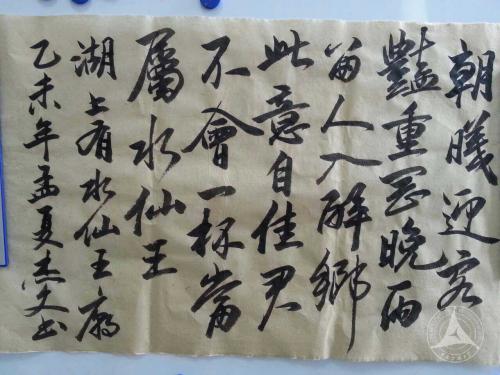 朝曦迎客
艷重岡晚雨
留人入醉鄉
此意自佳君
不會一杯當
屬水仙王
湖上有水仙王廟
乙未年孟夏杰文书